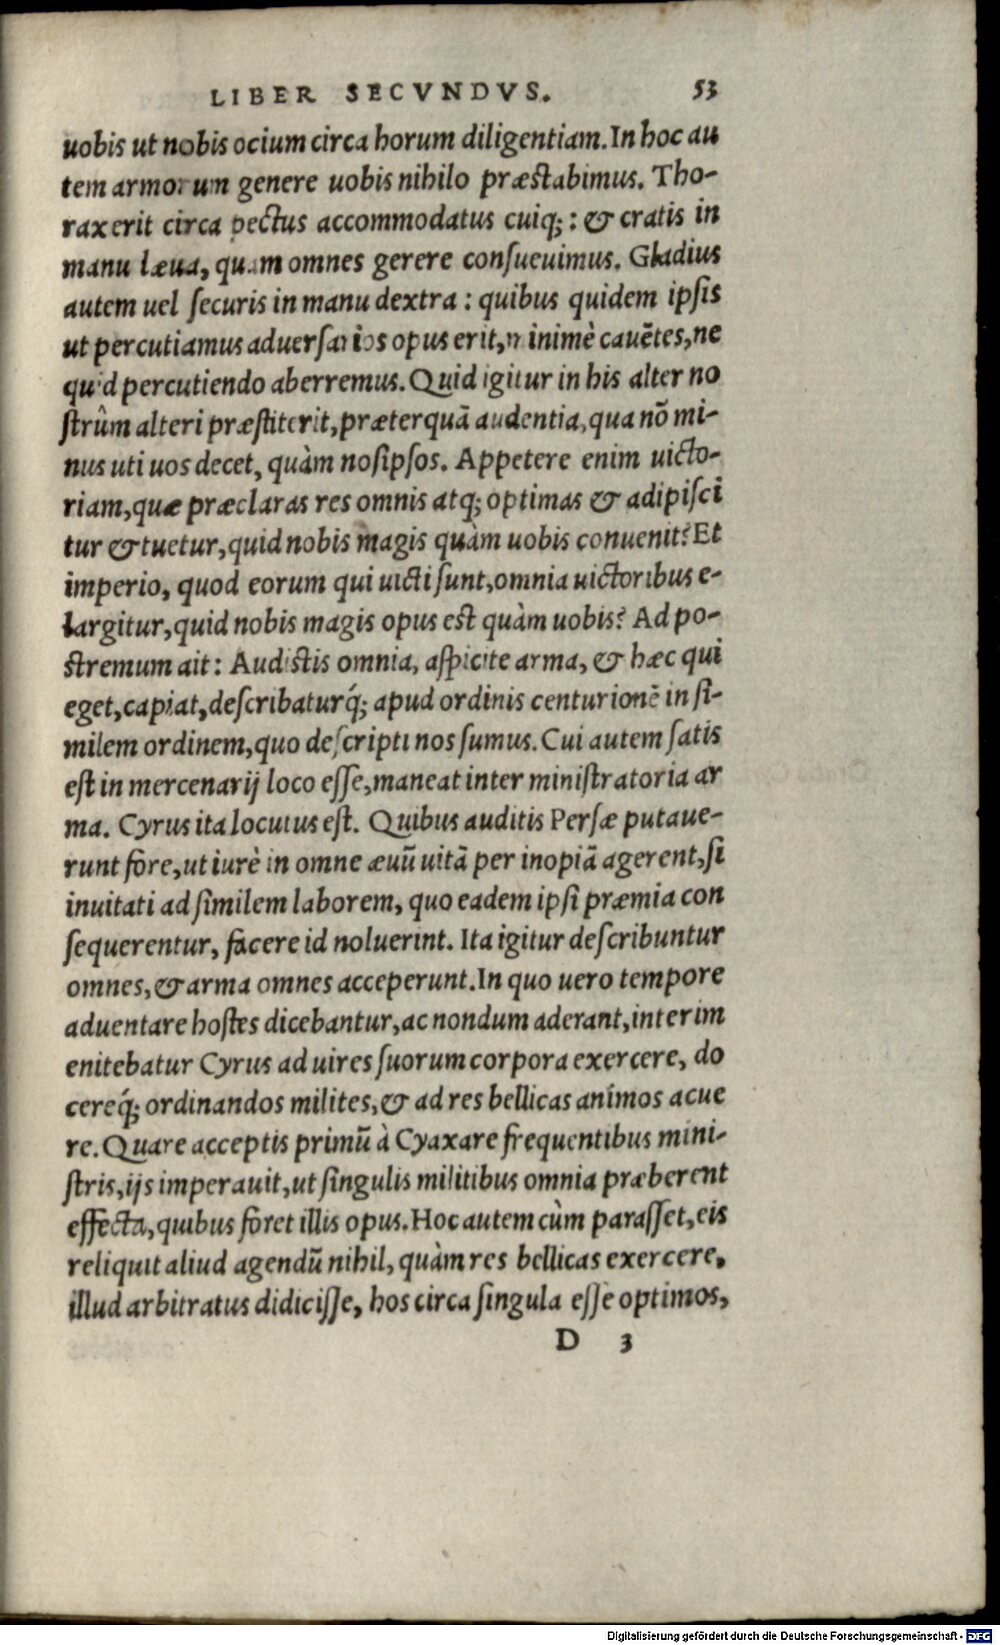 LIBER SECVNDVS. 53
uobis ut nobis ocium circa horum diligentiam. In hoc au
tem armorum genere uobis nihilo præstabimus. Tho-
rax erit circa pectus accommodatus cuiq;: & cratis in
manu læua, quam omnes gerere consueuimus. Gladius
autem uel securis in manu dextra: quibus quidem ipsis
ut percutiamus aduersarios opus erit, minimè cauētes, ne
quid percutiendo aberremus. Quid igitur in his alter no
strûm alteri præstiterit, præterquā audentia, qua nō mi-
nus uti uos decet, quàm nosipsos. Appetere enim uicto-
riam, quæ præclaras res omnis atq; optimas & adipisci
tur & tuetur, quid nobis magis quàm uobis conuenit? Et
imperio, quod eorum qui uicti sunt, omnia uictoribus e-
largitur, quid nobis magis opus est quàm uobis? Ad po-
stremum ait: Audistis omnia, aspicite arma, & hæc qui
eget, capiat, describaturq́; apud ordinis centurionē in si-
milem ordinem, quo descripti nos sumus. Cui autem satis
est in mercenarij loco esse, maneat inter ministratoria ar
ma. Cyrus ita locutus est. Quibus auditis Persæ putaue-
runt fore, ut iurè in omne æuū uitā per inopiā agerent, si
inuitati ad similem laborem, quo eadem ipsi præmia con
sequerentur, facere id noluerint. Ita igitur describuntur
omnes, & arma omnes acceperunt. In quo uero tempore
aduentare hostes dicebantur, ac nondum aderant, interim
enitebatur Cyrus ad uires suorum corpora exercere, do
cereq́; ordinandos milites, & ad res bellicas animos acue
re. Quare acceptis primū à Cyaxare frequentibus mini-
stris, ijs imperauit, ut singulis militibus omnia præberent
effecta, quibus foret illis opus. Hoc autem cùm parasset, eis
reliquit aliud agendū nihil, quàm res bellicas exercere,
illud arbitratus didicisse, hos circa singula esse optimos,
D 3
Digitalisierung gefördert durch die Deutsche Forschungsgemeinschaft - DFG